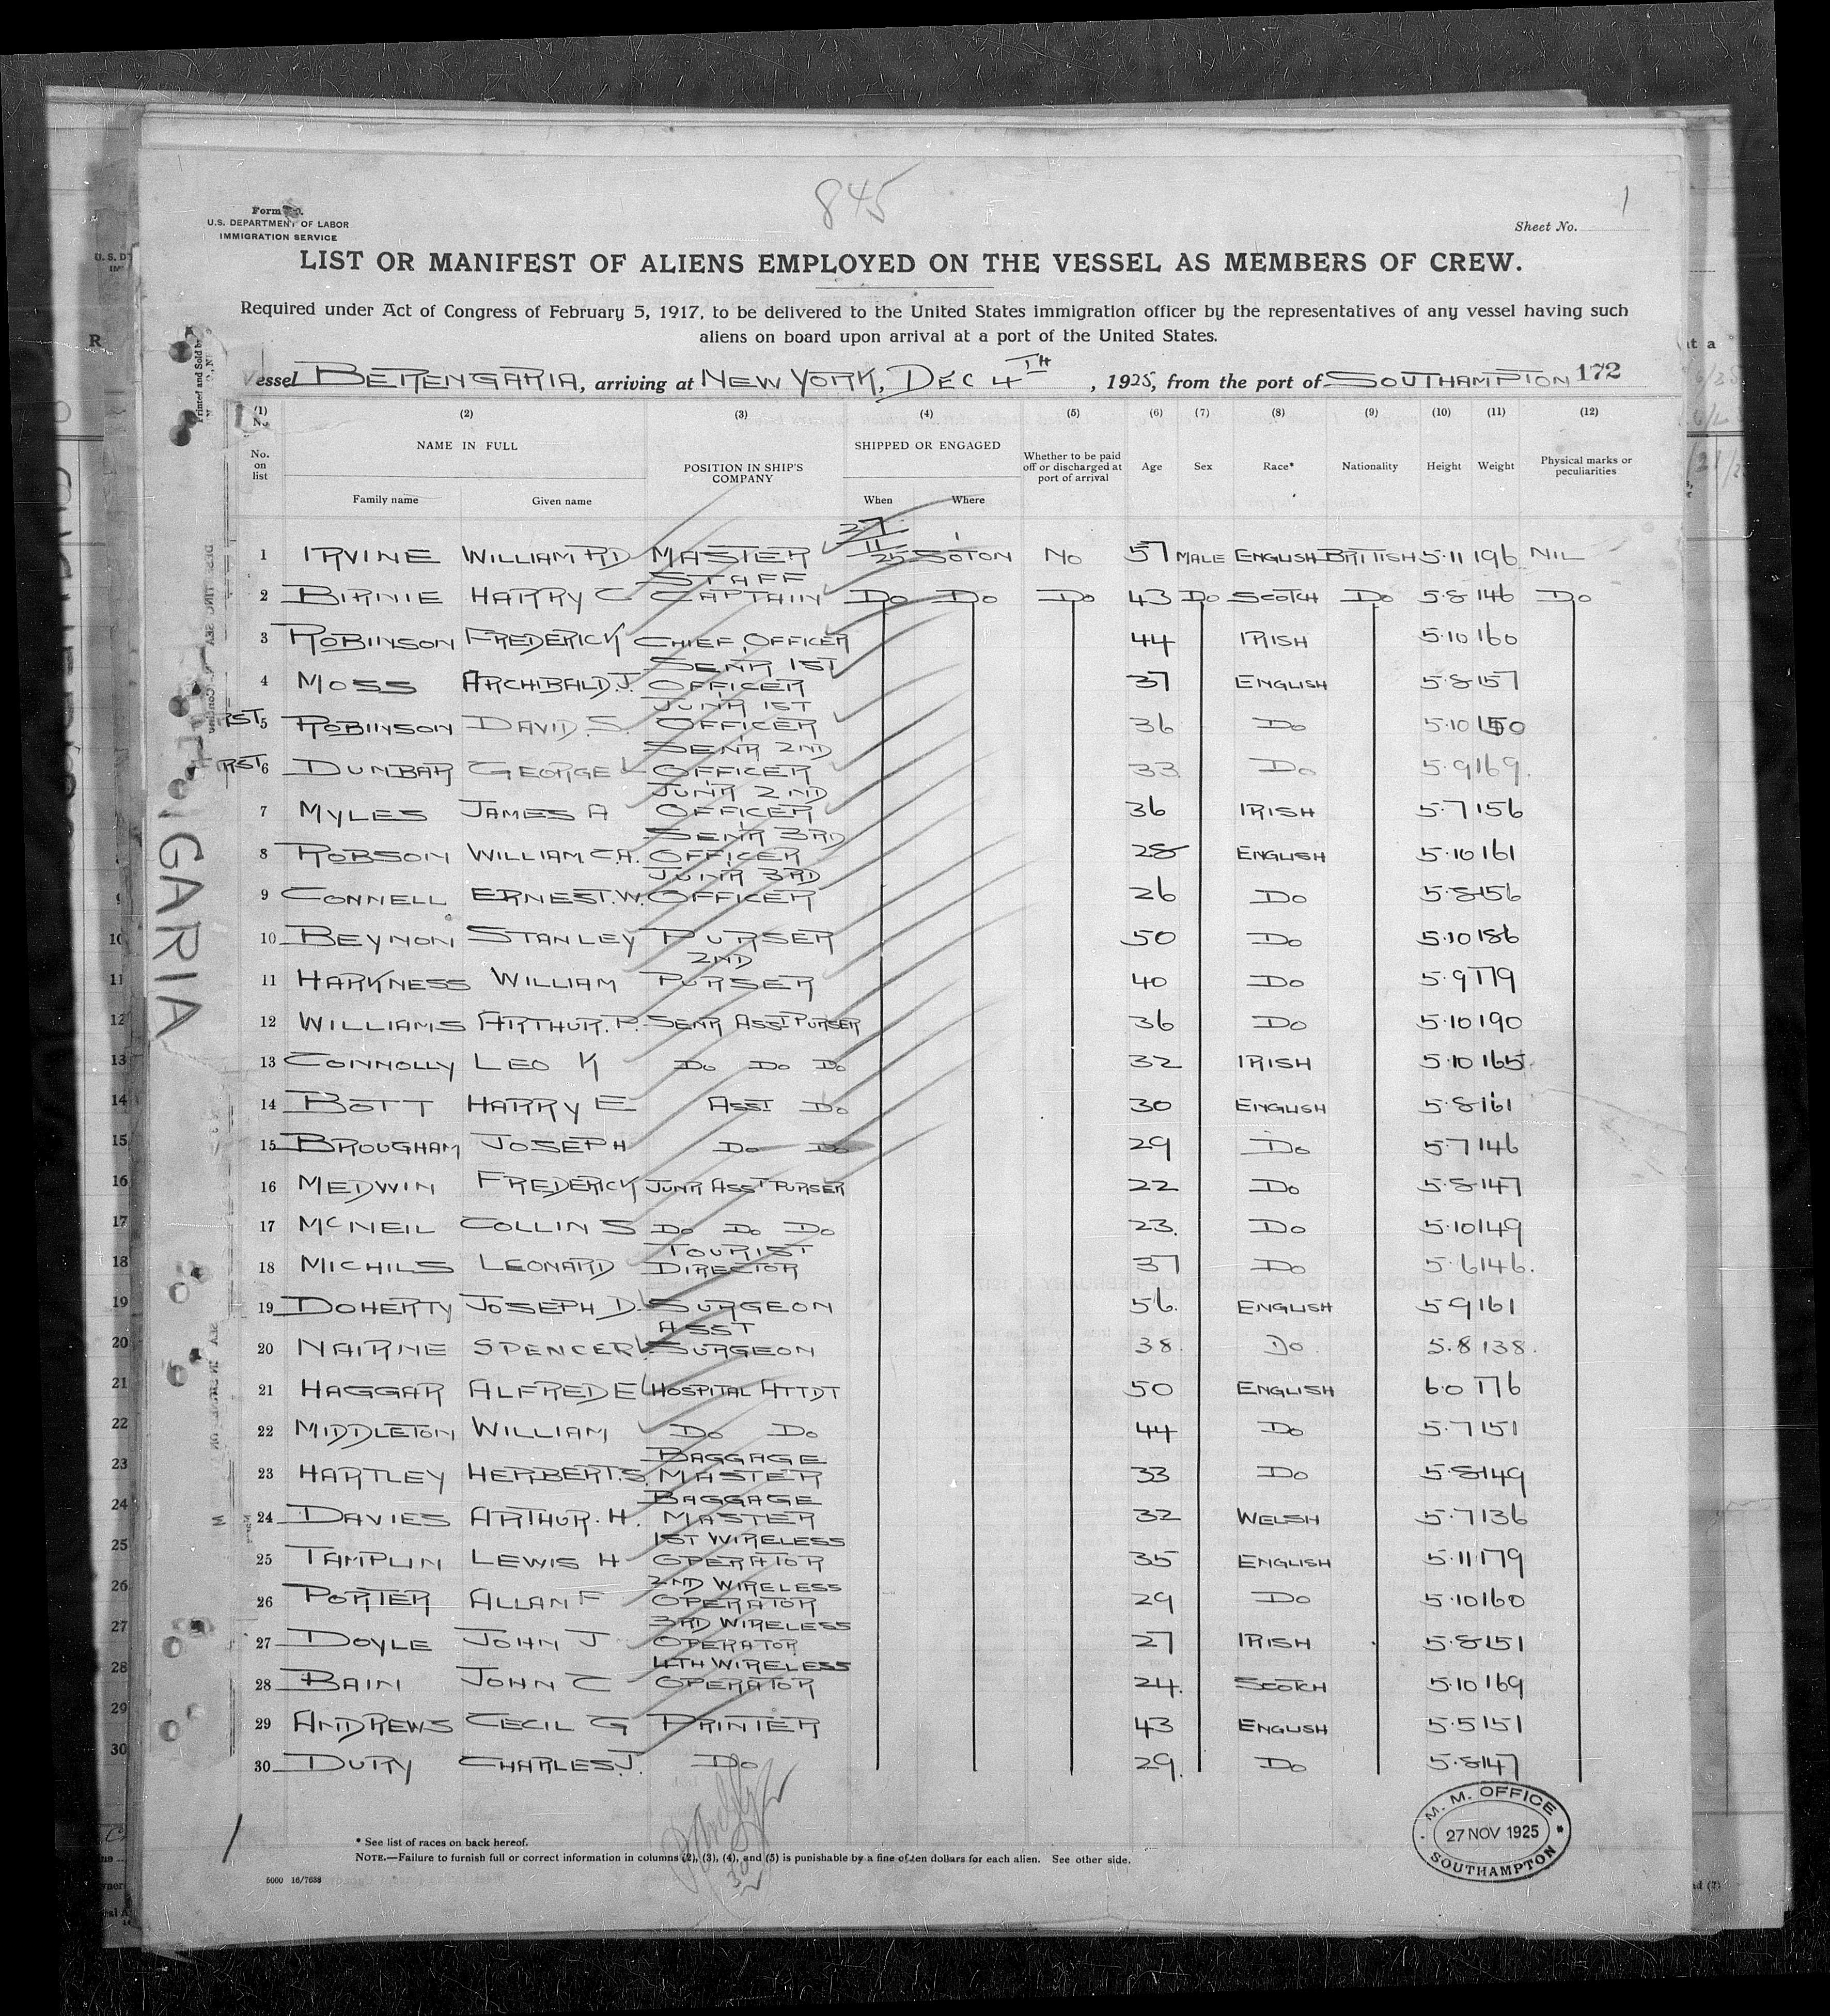 845
1
Form
U.S. DEPARTMENT OF LABOR
IMMIGRATION SERVICE
Sheet No.
LIST OR MANIFEST OF ALIENS EMPLOYED ON THE VESSEL AS MEMBERS OF CREW.
Required under Act of Congress of February 5, 1917, to be delivered to the United States immigration officer by the representatives of any vessel having such
aliens on board upon arrival at a port of the United States.
Vessel BERENGARIA, arriving at NEW YORK, DEC 4TH, 1925, from the port of SOUTHAMPTON 172
(1) (2) (3) (4) (5) (6) (7) (8) (9) (10) (11) (12)
No. on list NAME IN FULL Family name Given name POSITION IN SHIP'S COMPANY SHIPPED OR ENGAGED When Where Whether to be paid off or discharged at port of arrival Age Sex Race* Nationality Height Weight Physical marks or peculiarities
1 IRVINE WILLIAM RD MASTER 27/11/25 SOTON NO 57 MALE ENGLISH BRITISH 5.11 196 NIL
2 BIRNIE HARRY C STAFF CAPTAIN DO DO DO 43 DO SCOTCH DO 5.8 146 DO
3 ROBINSON FREDERICK CHIEF OFFICER 44 IRISH 5.10 160
4 MOSS ARCHIBALD J. SENR 1ST OFFICER 37 ENGLISH 5.8 157
5 ROBINSON DAVID. S. JUNR 1ST OFFICER 36 DO 5.10 150
6 DUNBAR GEORGE L SENR 2ND OFFICER 33 DO 5.9 169.
7 MYLES JAMES A JUNR 2ND OFFICER 36 IRISH 5.7 156
8 ROBSON WILLIAM C.A. SENR 3RD OFFICER 28 ENGLISH 5.10 161
9 CONNELL ERNEST. W. JUNR 3RD OFFICER 26 DO 5.8 156
10 BEYNON STANLEY PURSER 50 DO 5.10 186
11 HARKNESS WILLIAM 2ND PURSER 40 DO 5.9 179
12 WILLIAMS ARTHUR. P. SENR ASST PURSER 36 DO 5.10 190
13 CONNOLLY LEO K DO DO DO 32 IRISH 5.10 165.
14 BOTT HARRY E ASST DO 30 ENGLISH 5.8 161
15 BROUGHAM JOSEPH DO DO 29 DO 5.7 146
16 MEDWIN FREDERICK JUNR ASST PURSER 22 DO 5.8 147
17 McNEIL COLLIN S DO DO DO 23. DO 5.10 149
18 MICHILS LEONARD TOURIST DIRECTOR 37 DO 5.6 146.
19 DOHERTY JOSEPH D. SURGEON 56. ENGLISH 5.9 161
20 NAIRNE SPENCER ASST SURGEON 38. DO 5.8 138.
21 HAGGAR ALFRED E HOSPITAL ATTDT 50 ENGLISH 6.0 176
22 MIDDLETON WILLIAM DO DO 44 DO 5.7 151
23 HARTLEY HERBERT. S. BAGGAGE MASTER 33 DO 5.8 149
24 DAVIES ARTHUR. H. BAGGAGE MASTER 32 WELSH 5.7 136
25 TAMPLIN LEWIS H 1ST WIRELESS OPERATOR 35 ENGLISH 5.11 179
26 PORTER ALLAN F 2ND WIRELESS OPERATOR 29 DO 5.10 160
27 DOYLE JOHN J 3RD WIRELESS OPERATOR 27 IRISH 5.8 151
28 BAIN JOHN C 4TH WIRELESS OPERATOR 24. SCOTCH 5.10 169
29 ANDREWS CECIL G PRINTER 43 ENGLISH 5.5 151
30 DURY CHARLES. J. DO 29. DO 5.8 147
* See list of races on back hereof.
NOTE.—Failure to furnish full or correct information in columns (2), (3), (4), and (5) is punishable by a fine of ten dollars for each alien. See other side.
5000 16/7638
M. M. OFFICE
27 NOV 1925
SOUTHAMPTON
GARIA